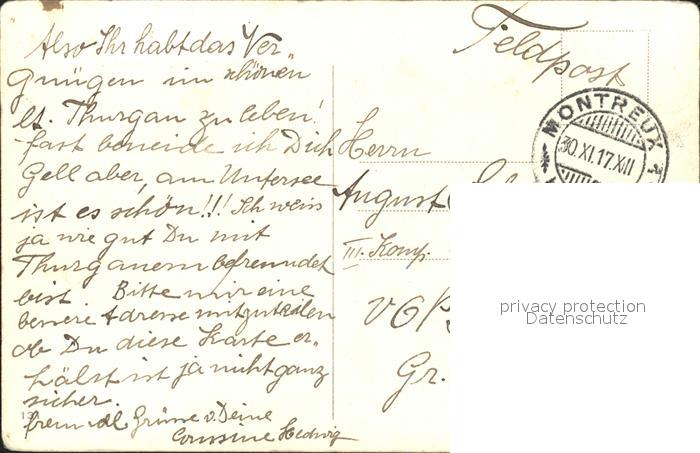 Also Ihr habt das Ver„
gnügen im schönen
Kt. Thurgau zu leben!
fast beneide ich Dich
Gell aber, am Untersee
ist es schön!!! Ich weiss
ja wie gut Du mit
Thurgauern befreundet
bist. Bitte mir eine
bessere Adresse mitzuteilen
ob Du diese Karte er„
hälst ist ja nicht ganz
sicher.
freundl Grüsse v. Deine
Cousine Hedwig
Feldpost
MONTREUX 1
30.XI.17.XII
Herrn
August
III. Komp.
Gr.
privacy protection
Datenschutz